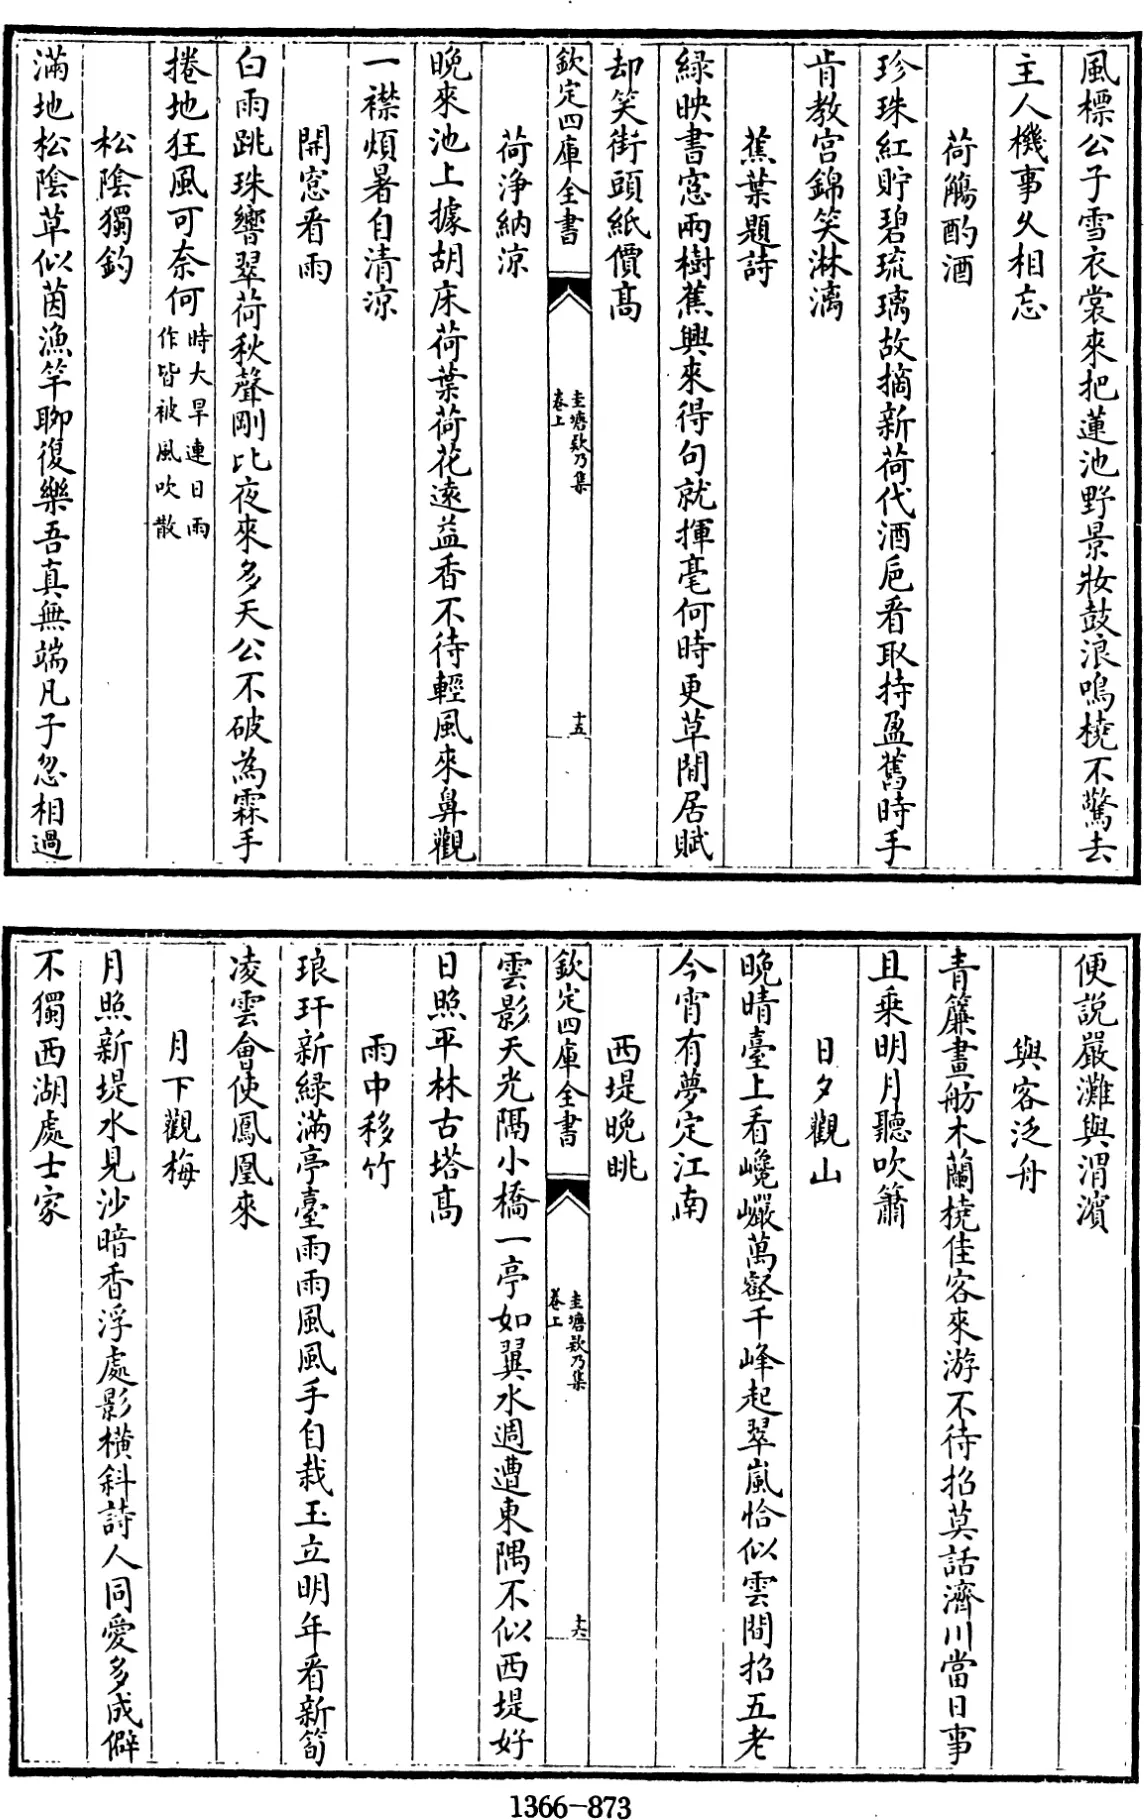 風標公子雪衣裳來把蓮池野景妝鼓浪鳴橈不驚去
主人機事久相忘
荷觴酌酒
珍珠紅貯碧琉璃故摘新荷代酒巵看取持盈舊時手
肯教宮錦笑淋漓
蕉葉題詩
綠映書窓兩樹蕉興來得句就揮毫何時更草閒居賦
却笑街頭紙價髙
欽定四庫全書
圭塘欵乃集
卷上
十五
荷淨納涼
晚來池上據胡床荷葉荷花遠益香不待輕風來鼻觀
一襟煩暑自清涼
開窓看雨
白雨跳珠響翠荷秋聲剛比夜來多天公不破為霖手
捲地狂風可奈何時大旱連日雨
作皆被風吹散
松隂獨釣
滿地松隂草似茵漁竿聊復樂吾真無端凡子忽相過
便説嚴灘與渭濱
與客泛舟
青簾畫舫木蘭橈佳客來游不待招莫話濟川當日事
且乗明月聽吹簫
日夕觀山
晚晴臺上看巉巖萬壑千峰起翠嵐恰似雲間招五老
今宵有夢定江南
西堤晚眺
欽定四庫全書
圭塘欵乃集
卷上
十六
雲影天光隔小橋一亭如翼水週遭東隅不似西堤好
日照平林古塔髙
雨中移竹
琅玕新緑滿亭臺雨雨風風手自栽玉立明年看新筍
凌雲會使鳳凰來
月下觀梅
月照新堤水見沙暗香浮處影橫斜詩人同愛多成僻
不獨西湖處士家
1366-873